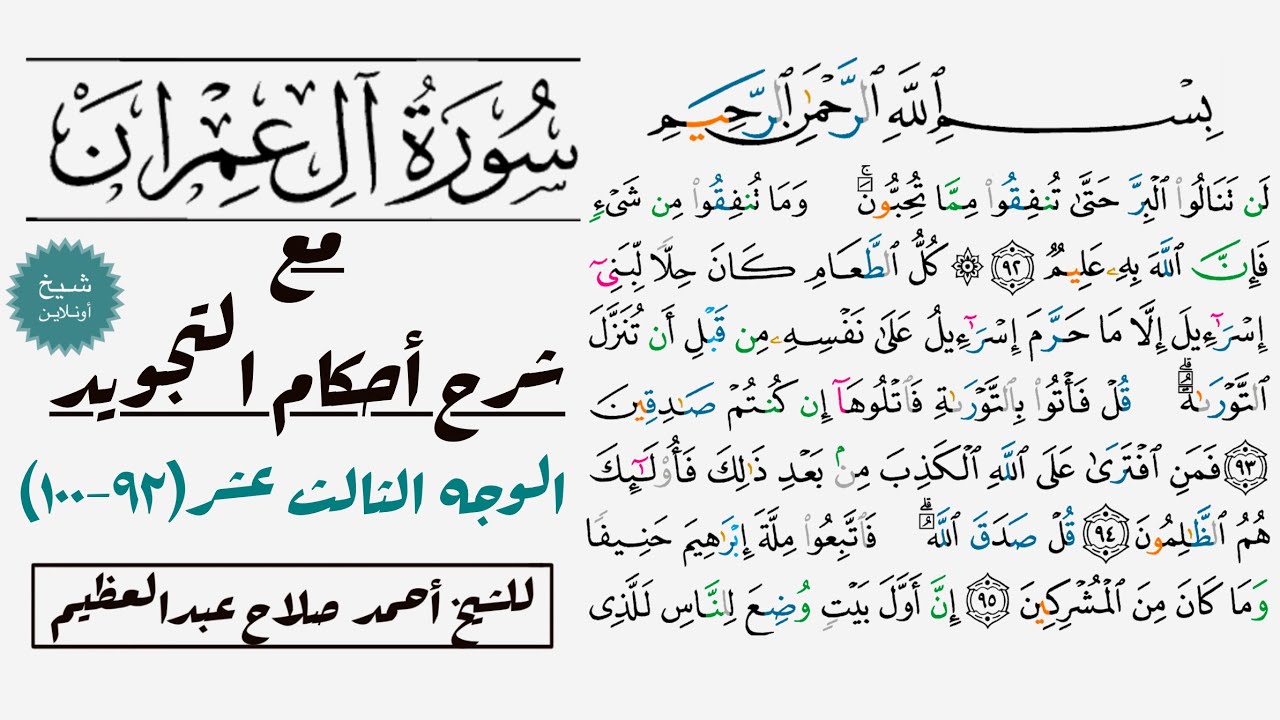 سُورَةُ آلِ عِمْرَانَ
مع
شرح أحكام التجويد
الوجه الثالث عشر (٩٢-١٠٠)
للشيخ أحمد صلاح عبدالعظيم
شيخ
أونلاين
بِسْمِ اللَّهِ الرَّحْمَٰنِ الرَّحِيمِ
لَن تَنَالُوا۟ ٱلْبِرَّ حَتَّىٰ تُنفِقُوا۟ مِمَّا تُحِبُّونَ ۚ وَمَا تُنفِقُوا۟ مِن شَىْءٍ
فَإِنَّ ٱللَّهَ بِهِۦ عَلِيمٌ ٩٢ ۞ كُلُّ ٱلطَّعَامِ كَانَ حِلًّا لِّبَنِىٓ
إِسْرَٰٓءِيلَ إِلَّا مَا حَرَّمَ إِسْرَٰٓءِيلُ عَلَىٰ نَفْسِهِۦ مِن قَبْلِ أَن تُنَزَّلَ
ٱلتَّوْرَىٰةُ ۗ قُلْ فَأْتُوا۟ بِٱلتَّوْرَىٰةِ فَٱتْلُوهَآ إِن كُنتُمْ صَٰدِقِينَ
٩٣ فَمَنِ ٱفْتَرَىٰ عَلَى ٱللَّهِ ٱلْكَذِبَ مِنۢ بَعْدِ ذَٰلِكَ فَأُو۟لَٰٓئِكَ
هُمُ ٱلظَّٰلِمُونَ ٩٤ قُلْ صَدَقَ ٱللَّهُ ۗ فَٱتَّبِعُوا۟ مِلَّةَ إِبْرَٰهِيمَ حَنِيفًا
وَمَا كَانَ مِنَ ٱلْمُشْرِكِينَ ٩٥ إِنَّ أَوَّلَ بَيْتٍ وُضِعَ لِلنَّاسِ لَلَّذِى